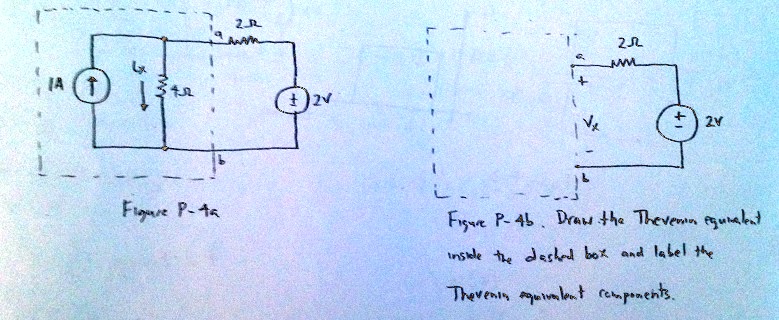 1A
ix
4Ω
a
2Ω
± 2V
b
Figure P-4a
a
2Ω
+
Vx
-
+
-
2V
b
Figure P-4b. Draw the Thevenin equivalent
inside the dashed box and label the
Thevenin equivalent components.